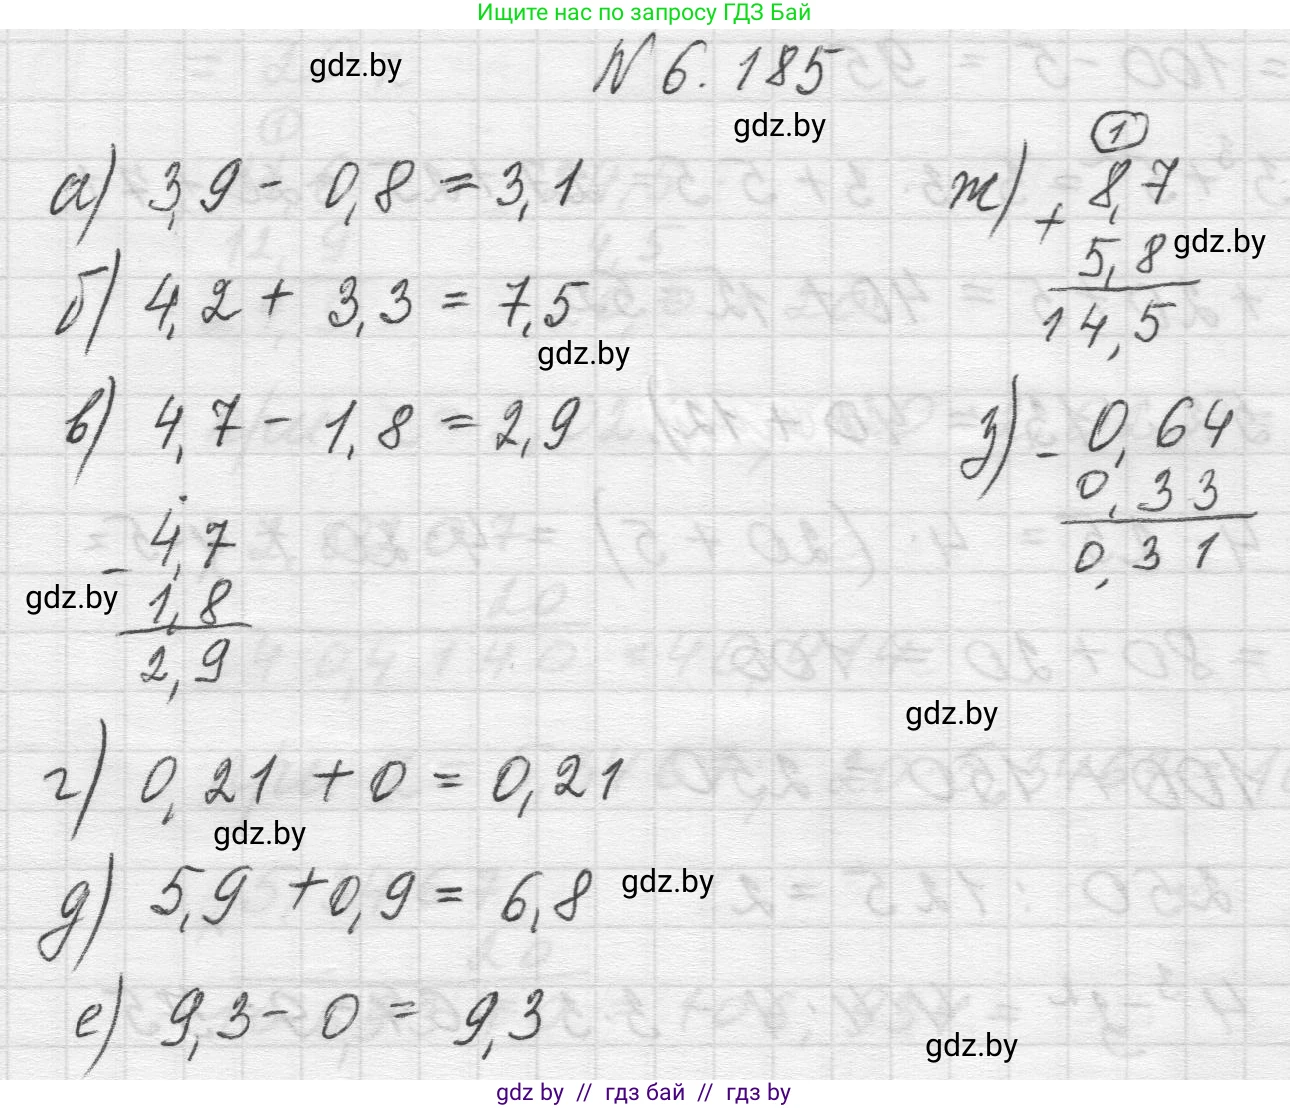 Ищите нас по запросу ГДЗ Бай
gdz.by
№ 6. 185
gdz.by
а) 3,9 - 0,8 = 3,1
б) 4,2 + 3,3 = 7,5
gdz.by
в) 4,7 - 1,8 = 2,9
4,7
-
gdz.by
1,8
2,9
г) 0,21 + 0 = 0,21
gdz.by
д) 5,9 + 0,9 = 6,8
gdz.by
е) 9,3 - 0 = 9,3
1
ж) + 8,7
5,8
gdz.by
14,5
з) - 0,64
0,33
0,31
gdz.by
gdz.by
gdz by // гдз бай // гдз by